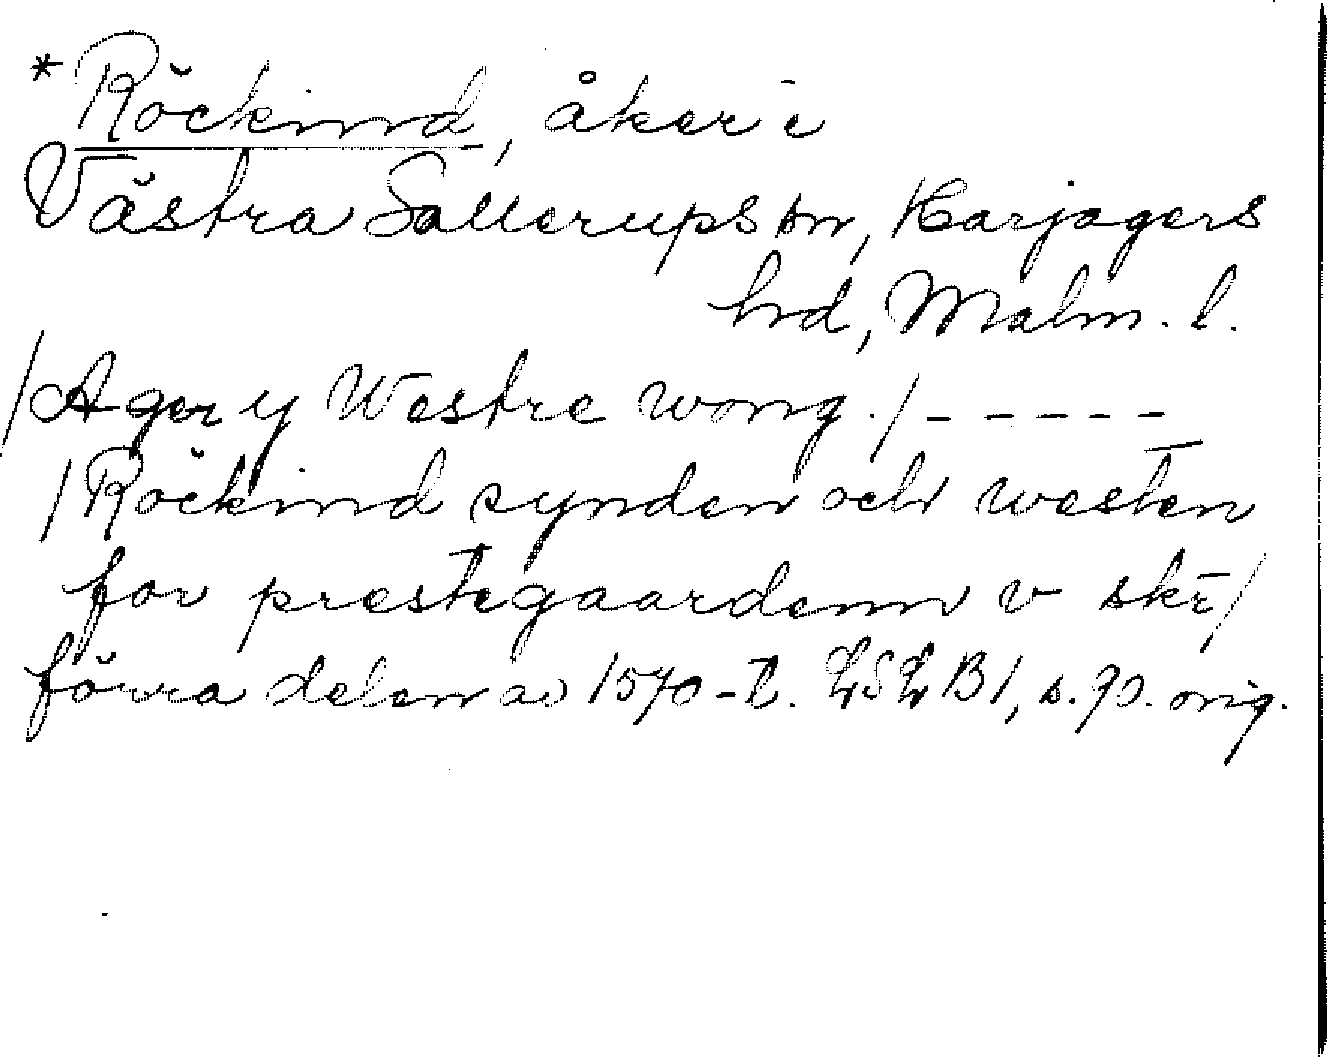 *Röckind, åker i
Västra Sallerups sn, Harjagers
hrd, Malm. l.
/Ager y Westre wong./ - - - - -
/Röckind synden och westen
for prestegaardenn v skr/
förra delen av 1570-t. LSL B1, s. 90. orig.